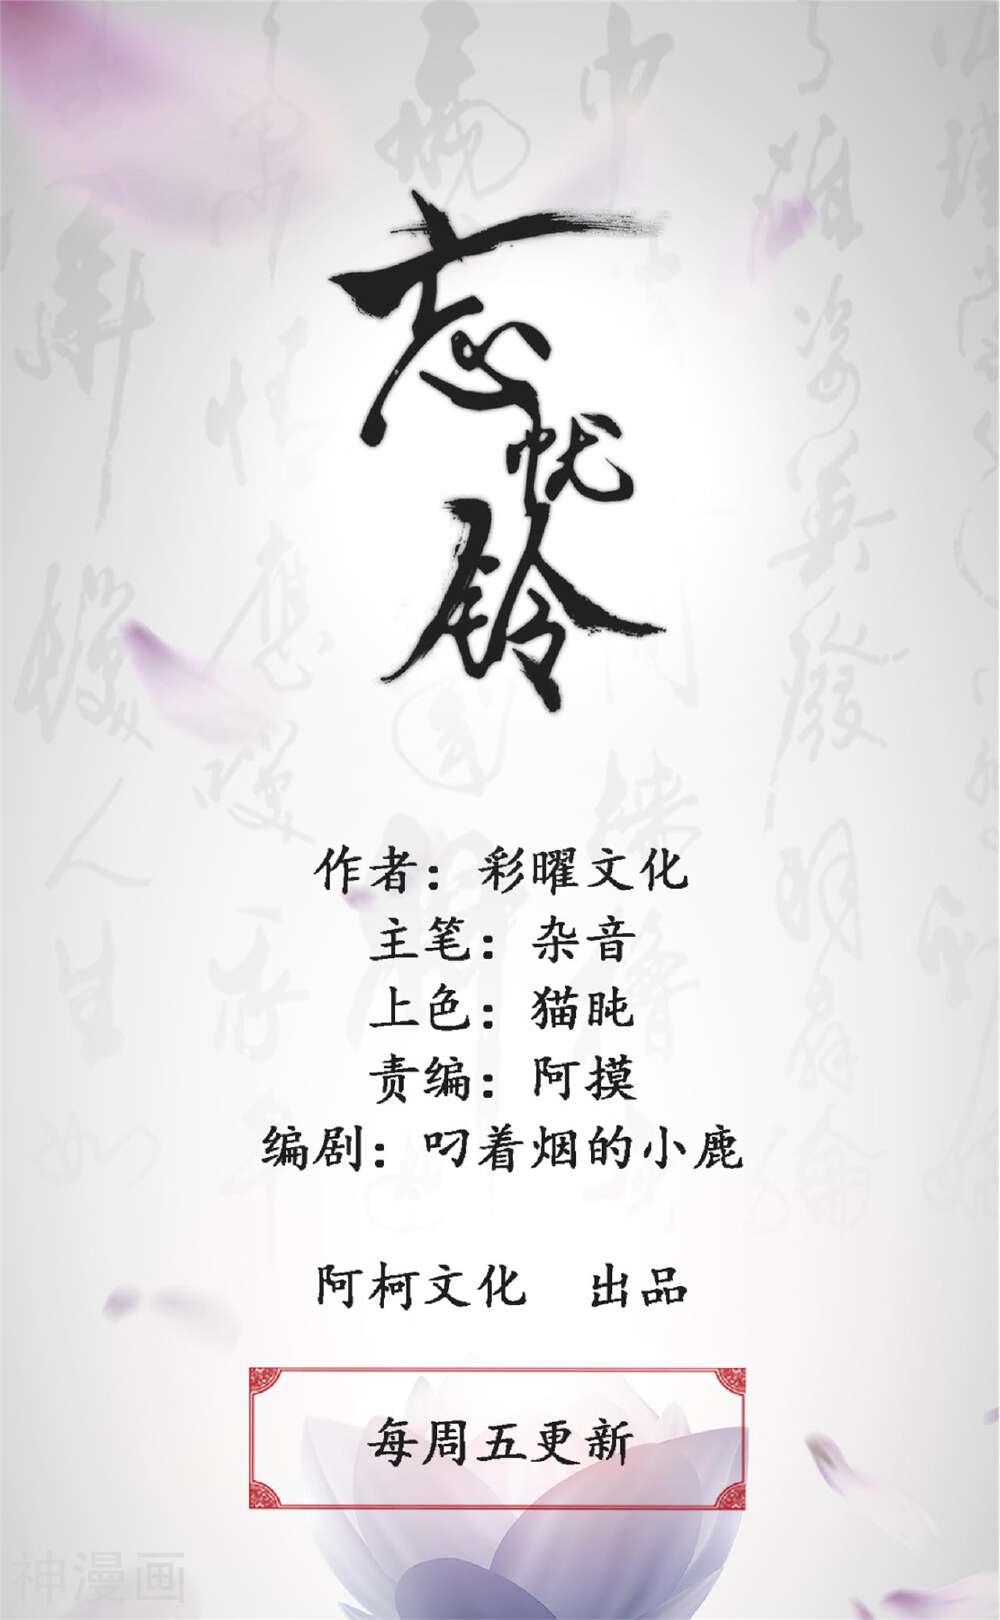 忘忧铃
作者：彩曜文化
主笔：杂音
上色：猫盹
责编：阿摸
编剧：叼着烟的小鹿
阿柯文化 出品
每周五更新
神漫画